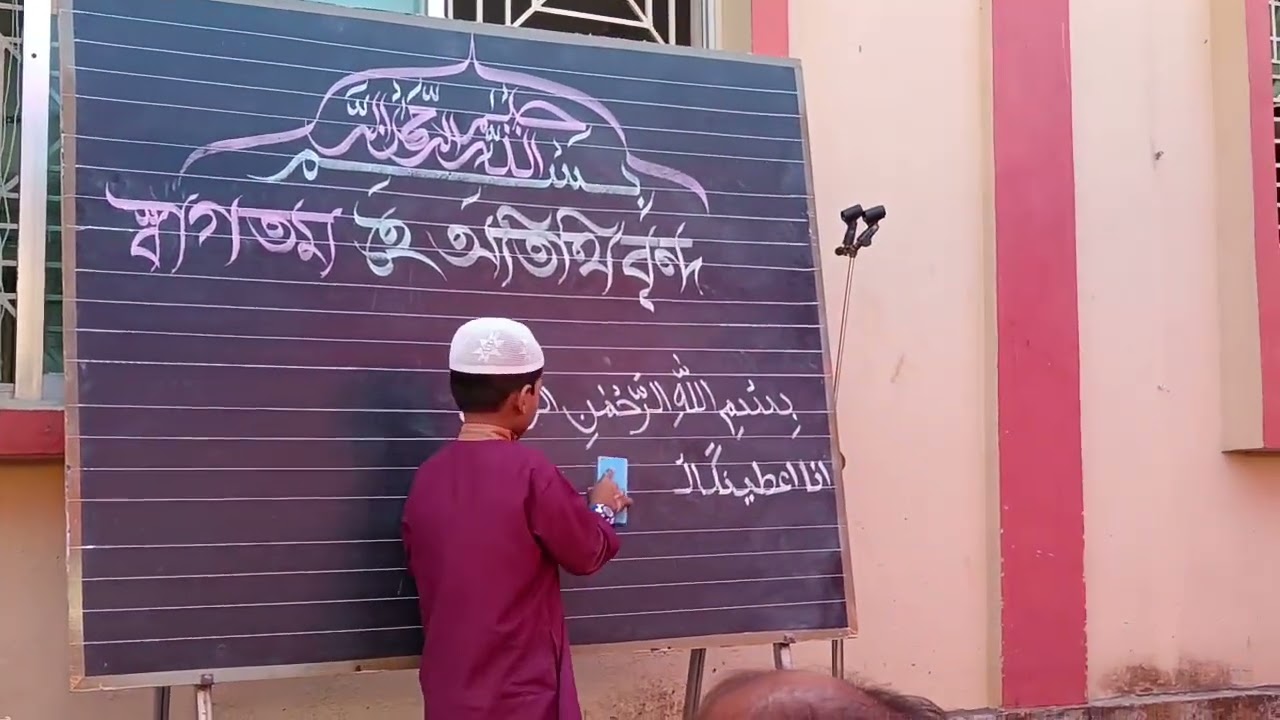 بسم الله الرحمن الرحيم
স্বাগতম হে অতিথিবৃন্দ
بِسْمِ اللهِ الرَّحْمٰنِ
انا اعطينٰك